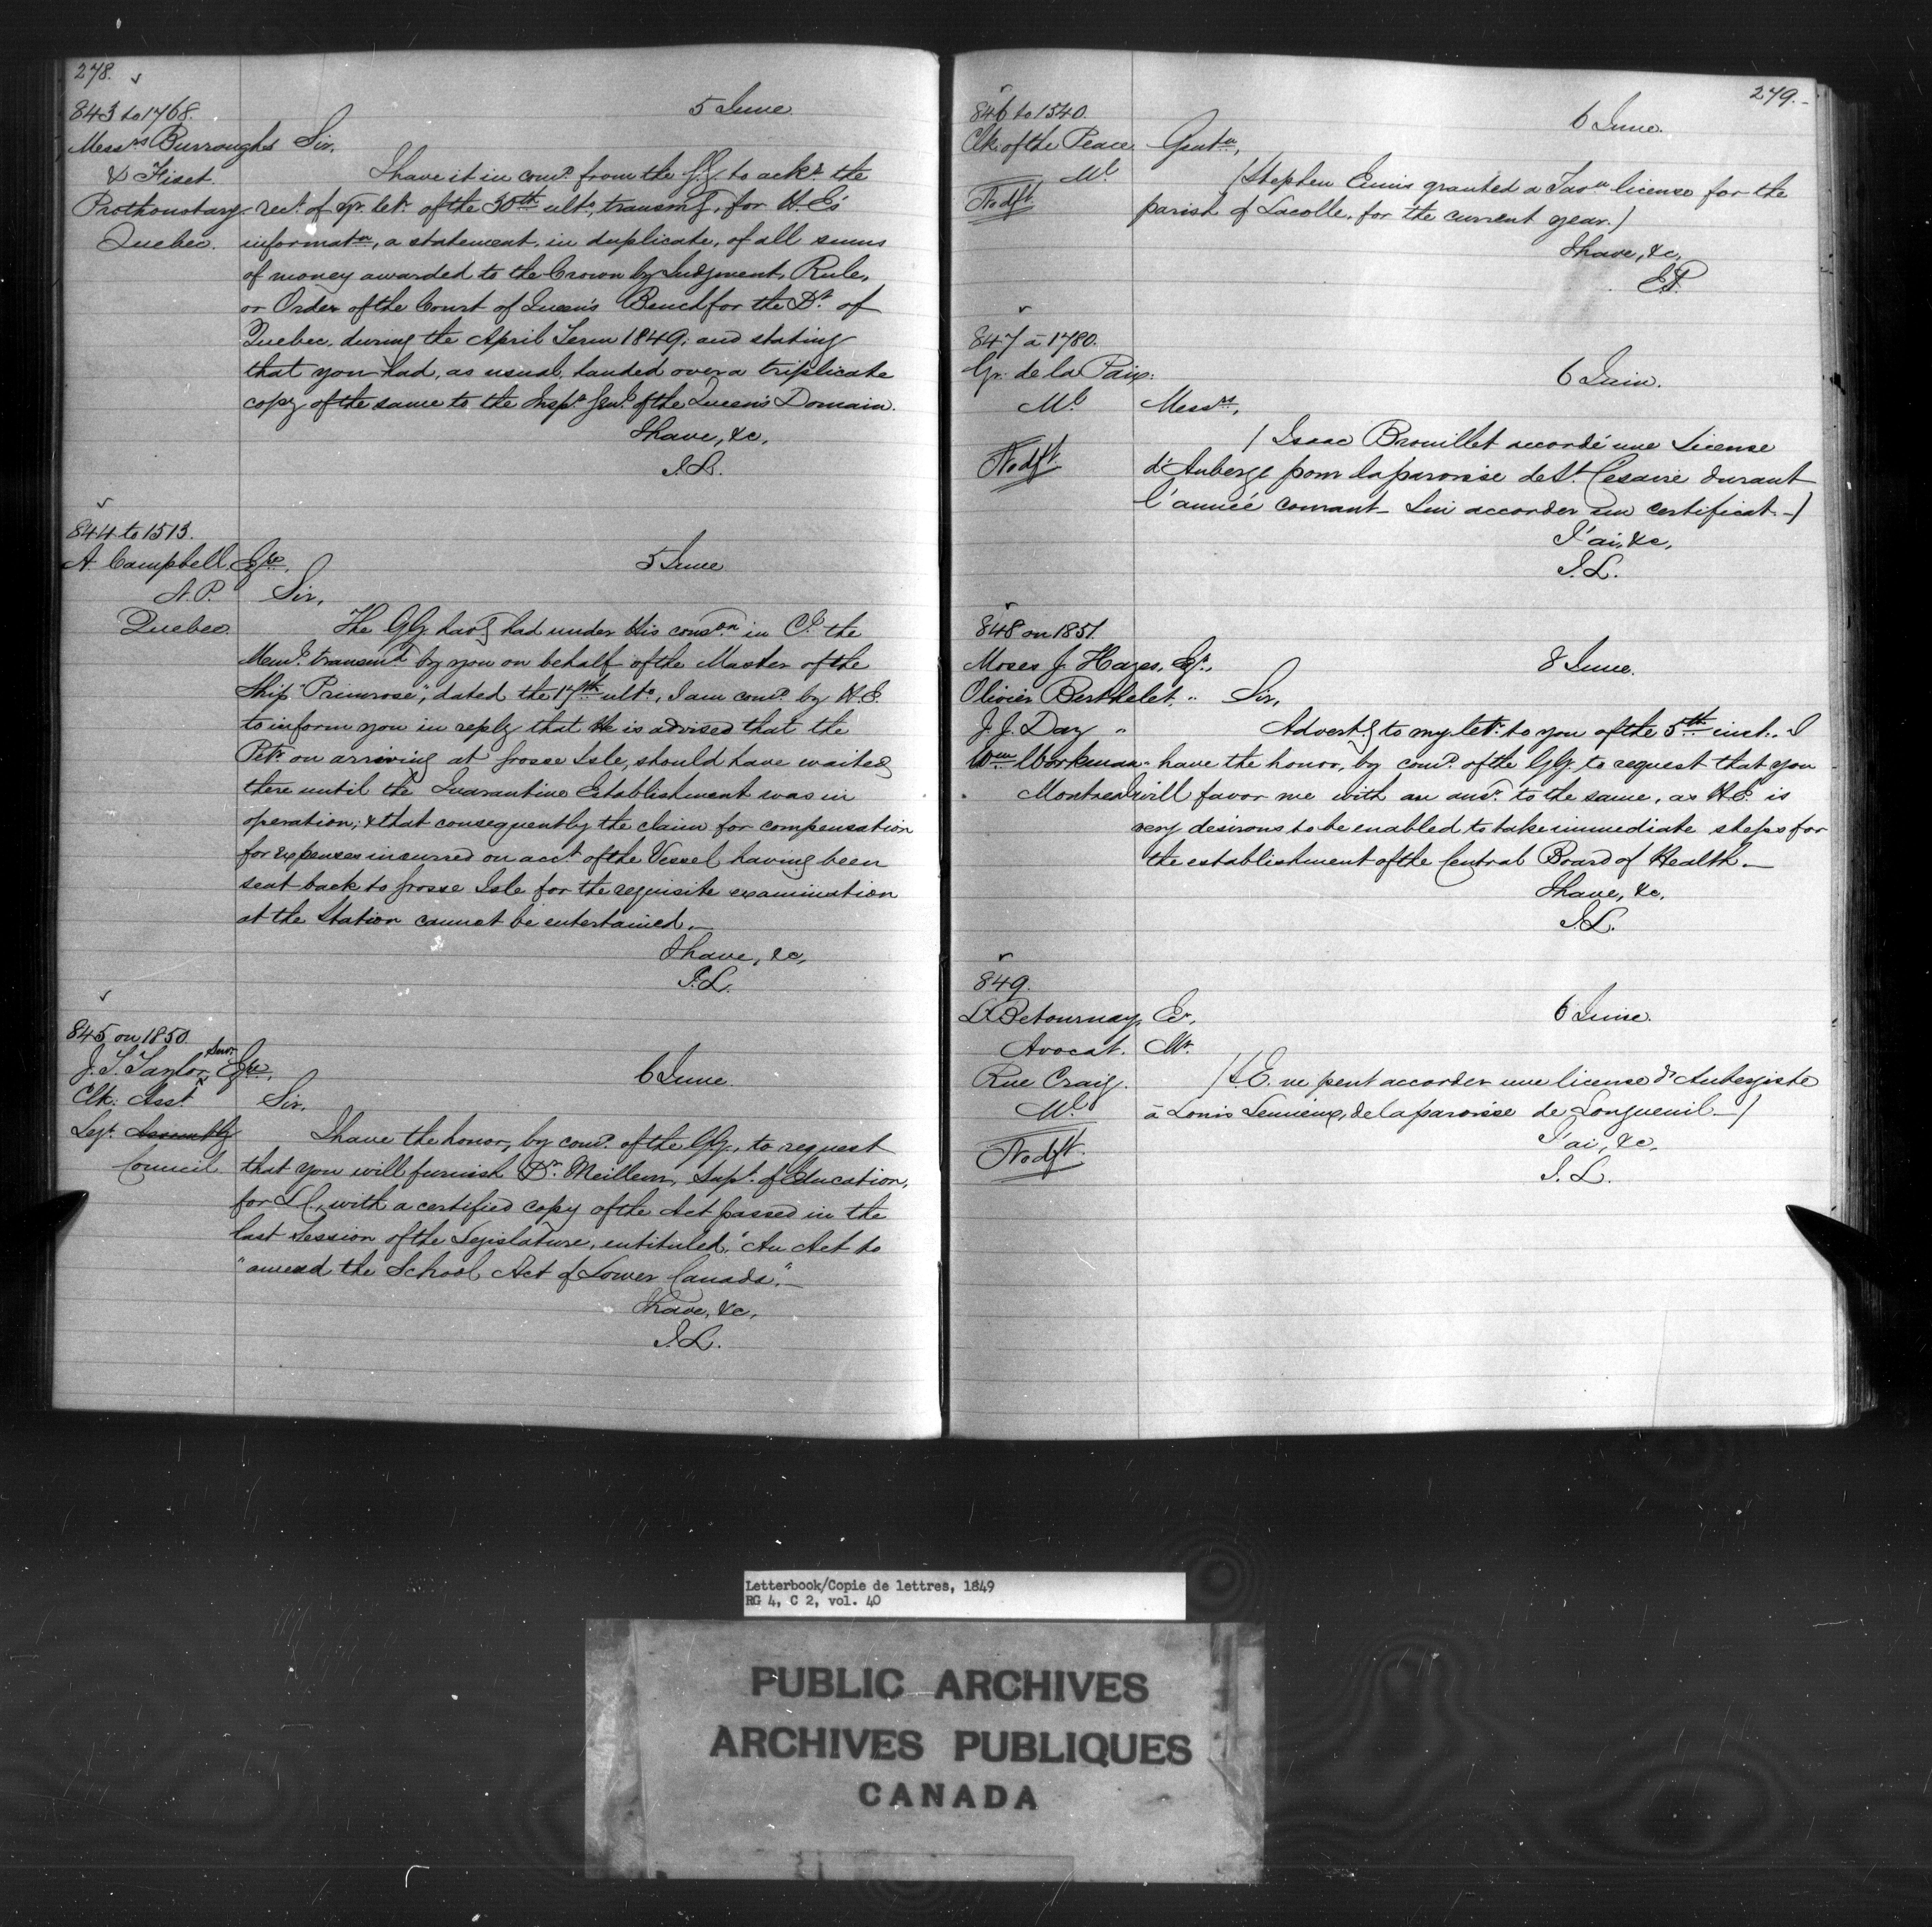 278.
843 to 1768.
5 June
Messrs Burroughs Sir,
& Fiset
I have it in comd. from the G.G. to ackn. the
Prothonotary
rect. of yr. letr. of the 30th ulto., transmg, for H.E's
Quebec.
informatn, a statement, in duplicate, of all sums
of money awarded to the Crown by Judgment, Rule,
or Order of the Court of Queen's Bench for the Dt. of
Quebec, during the April Term 1849; and stating
that you had, as usual, handed over a triplicate
copy of the same to the Inspr. Genl. of the Queen's Domain.
I have, &c,
J.L.
844 to 1513.
A. Campbell, Eqre,
5 June
N.P.
Sir,
Quebec.
The GG. havg had under His consdon in Cl. the
Meml. transmd by you on behalf of the Master of the
Ship "Primrose", dated the 17th ulto., I am comd. by H.E.
to inform you in reply that He is advised that the
Petr. on arriving at Grosse Isle, should have waited
there until the Quarantine Establishment was in
operation; & that consequently the claim for compensation
for expenses incurred on acct. of the Vessel having been
sent back to Grosse Isle for the requisite examination
at the Station cannot be entertained.—
I have, &c,
J.L.
845 on 1850.
J. T. Taylor, Senr Eqre,
6 June
Clk. Asst
Sir,
Legt. Assembly
I have the honor, by comd. of the GG., to request
Council
that you will furnish Dr. Meilleur, Supt. of Education,
for L.C., with a certified copy of the Act passed in the
last Session of the Legislature, entituled, "An Act to
"amend the School Act of Lower Canada".—
I have, &c,
J.L.
279.-
846 to 1540.
6 June.
Clk. of the Peace
Gentn,
Ml.
/Stephen Ennis granted a Tavn license for the
No dft
parish of Lacolle, for the current year./
I have, &c,
847 à 1780.
Gr. de la Paix.
6 Juin.
Ml
Messrs,
/ Isaac Brouillet accordé une License
No dft
d'Auberge pour la paroisse de St. Cesaire durant
l'année courant— Lui accorder un certificat.—/
J'ai, &c,
J.L.
848 on 1851.
Moses J. Hayes, Eqr.,
8 June.
Olivier Berthelet, "
Sir,
J. J. Day "
Advertg to my letr. to you of the 5th inst., I
Wm Workman "
have the honor, by comd. of the GG. to request that you
Montreal
will favor me with an ansr. to the same, as H.E. is
very desirous to be enabled to take immediate steps for
the establishment of the Central Board of Health.—
I have, &c.
J.L.
849.
L. Betournay, Er,
6 Juine.
Avocat.
Mr.
Rue Craig.
/S.E. ne peut accorder une license d'Aubergiste
Ml
à Louis Lemieux, de la paroisse de Longueuil.—/
No dft.
J'ai, &c,
J.L.
Letterbook/Copie de lettres, 1849
RG 4, C 2, vol. 40
PUBLIC ARCHIVES
ARCHIVES PUBLIQUES
CANADA